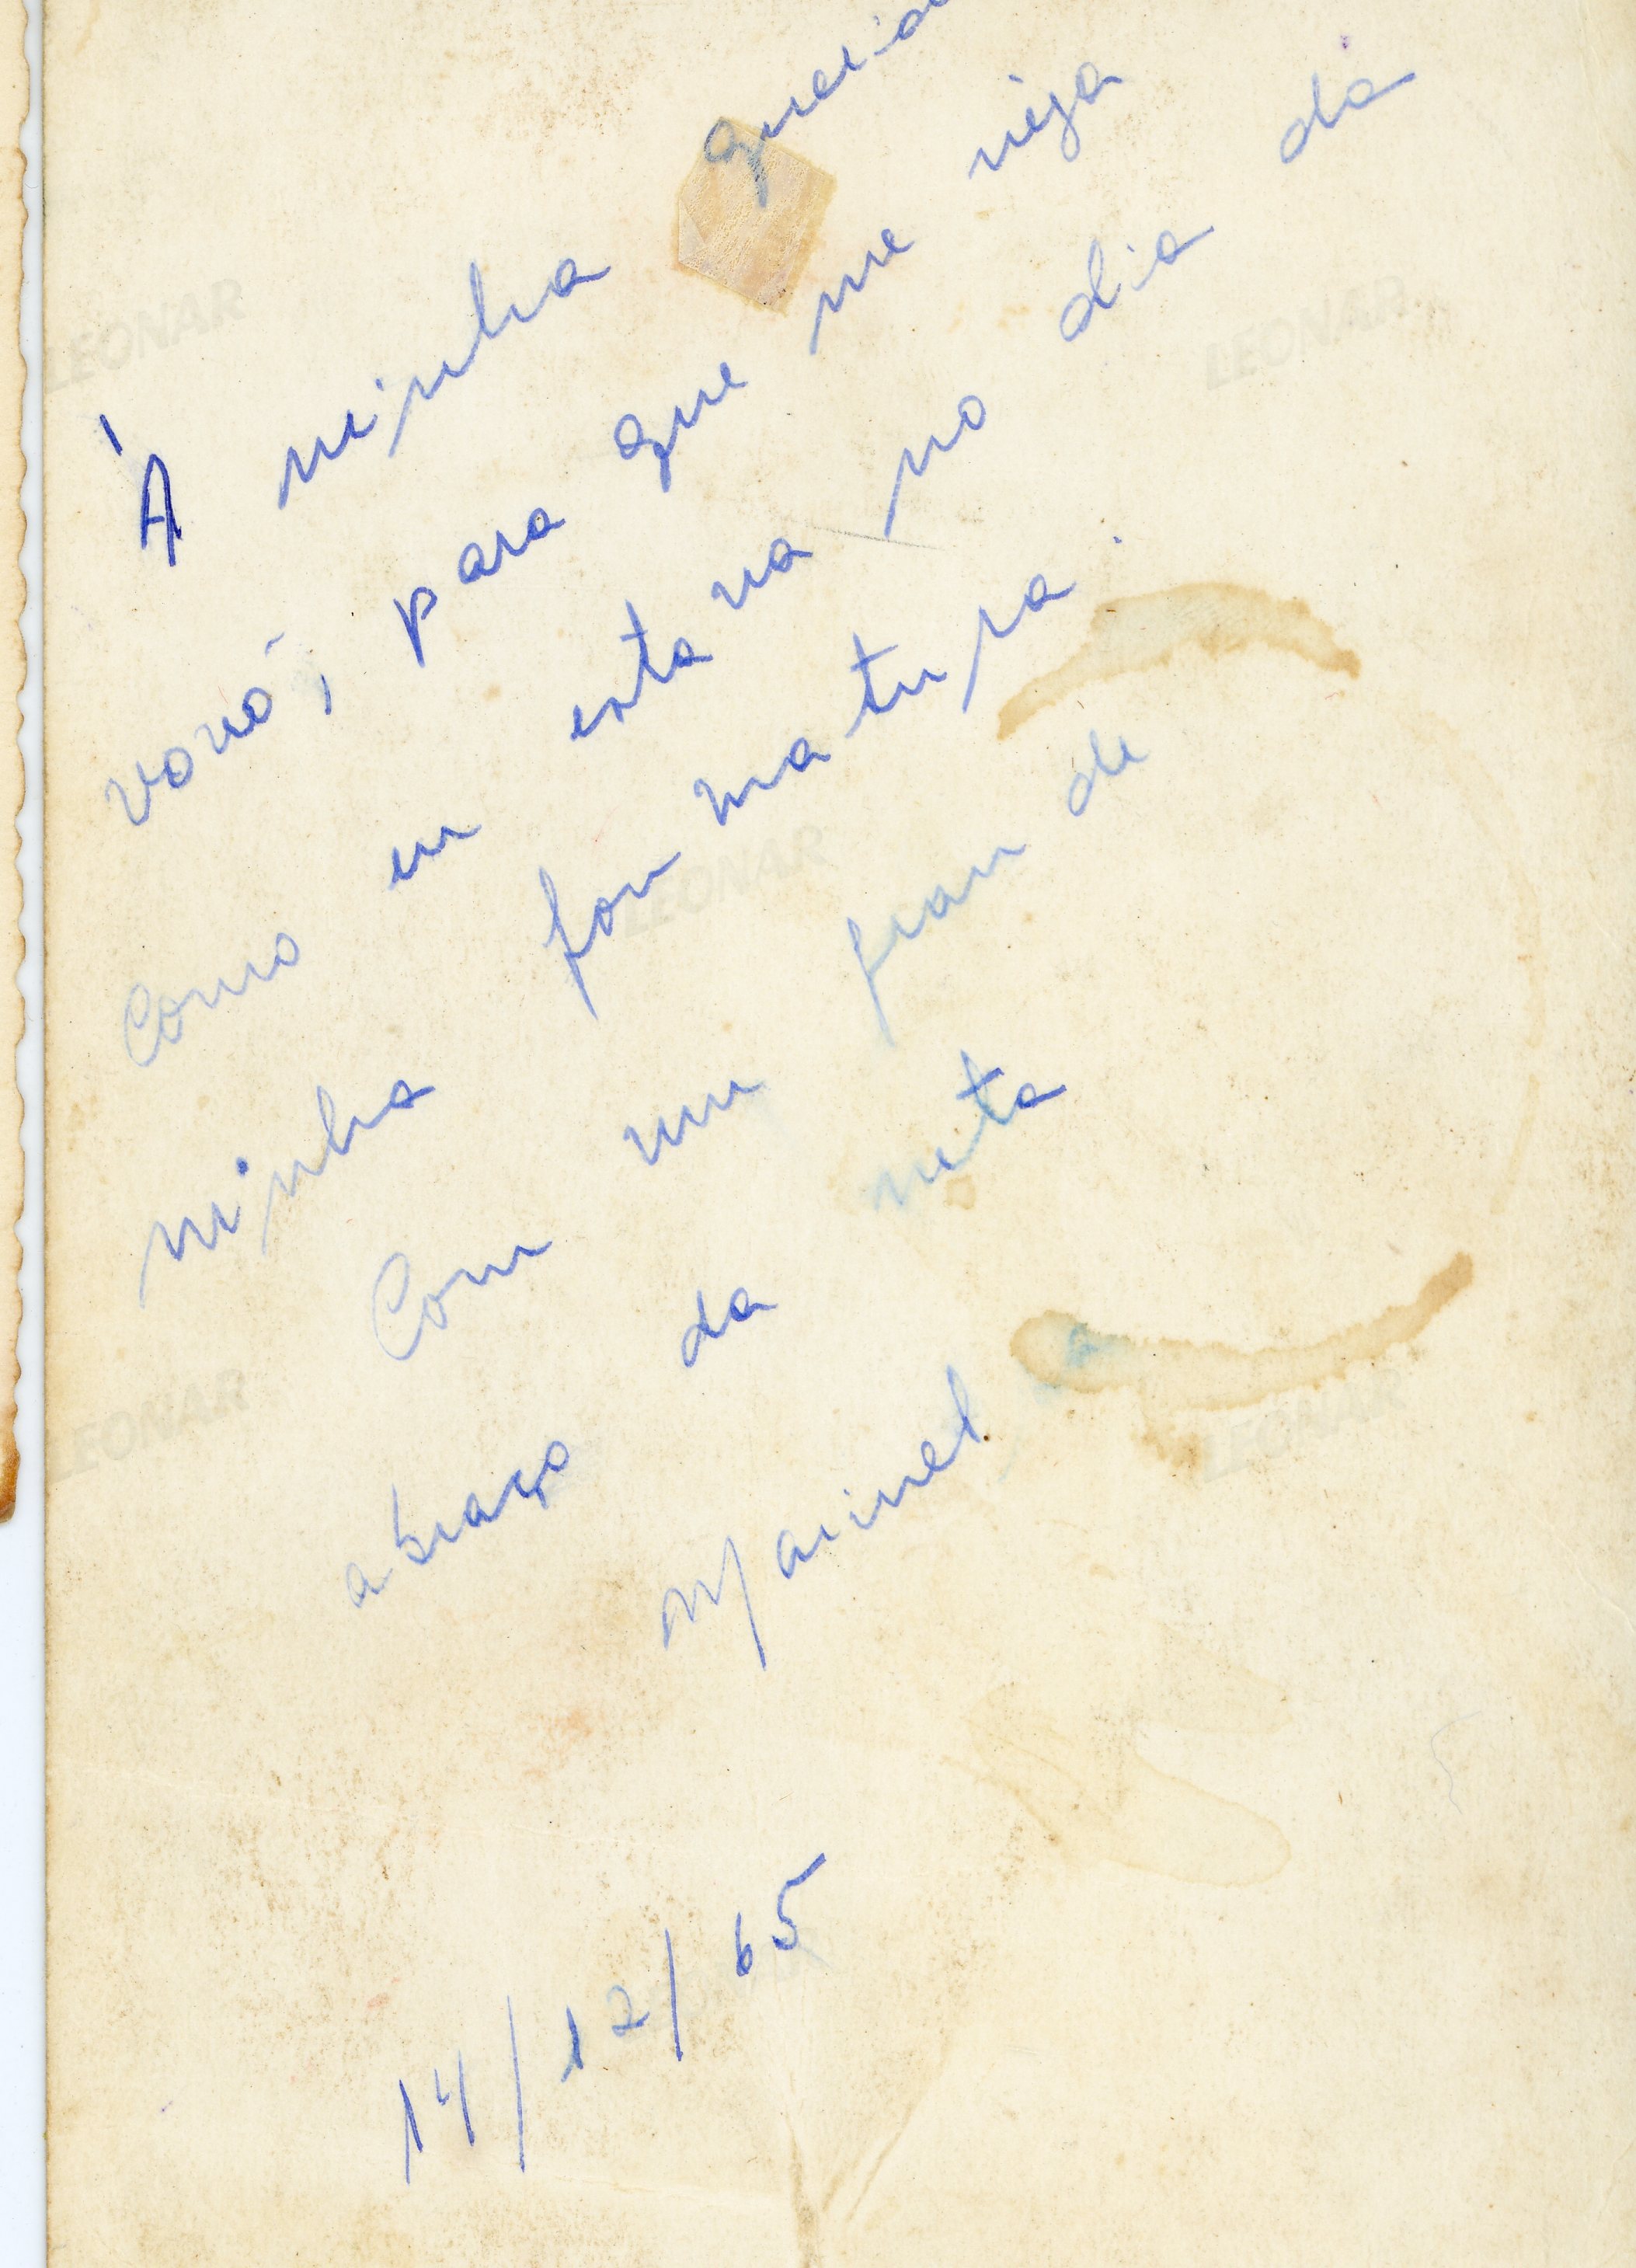 À minha
vovó, para que me veja
como eu estava no dia da
minha formatura.
Com um grande
abraço da neta
Marinel
14/12/65
LEONAR
LEONAR
LEONAR
LEONAR
LEONAR